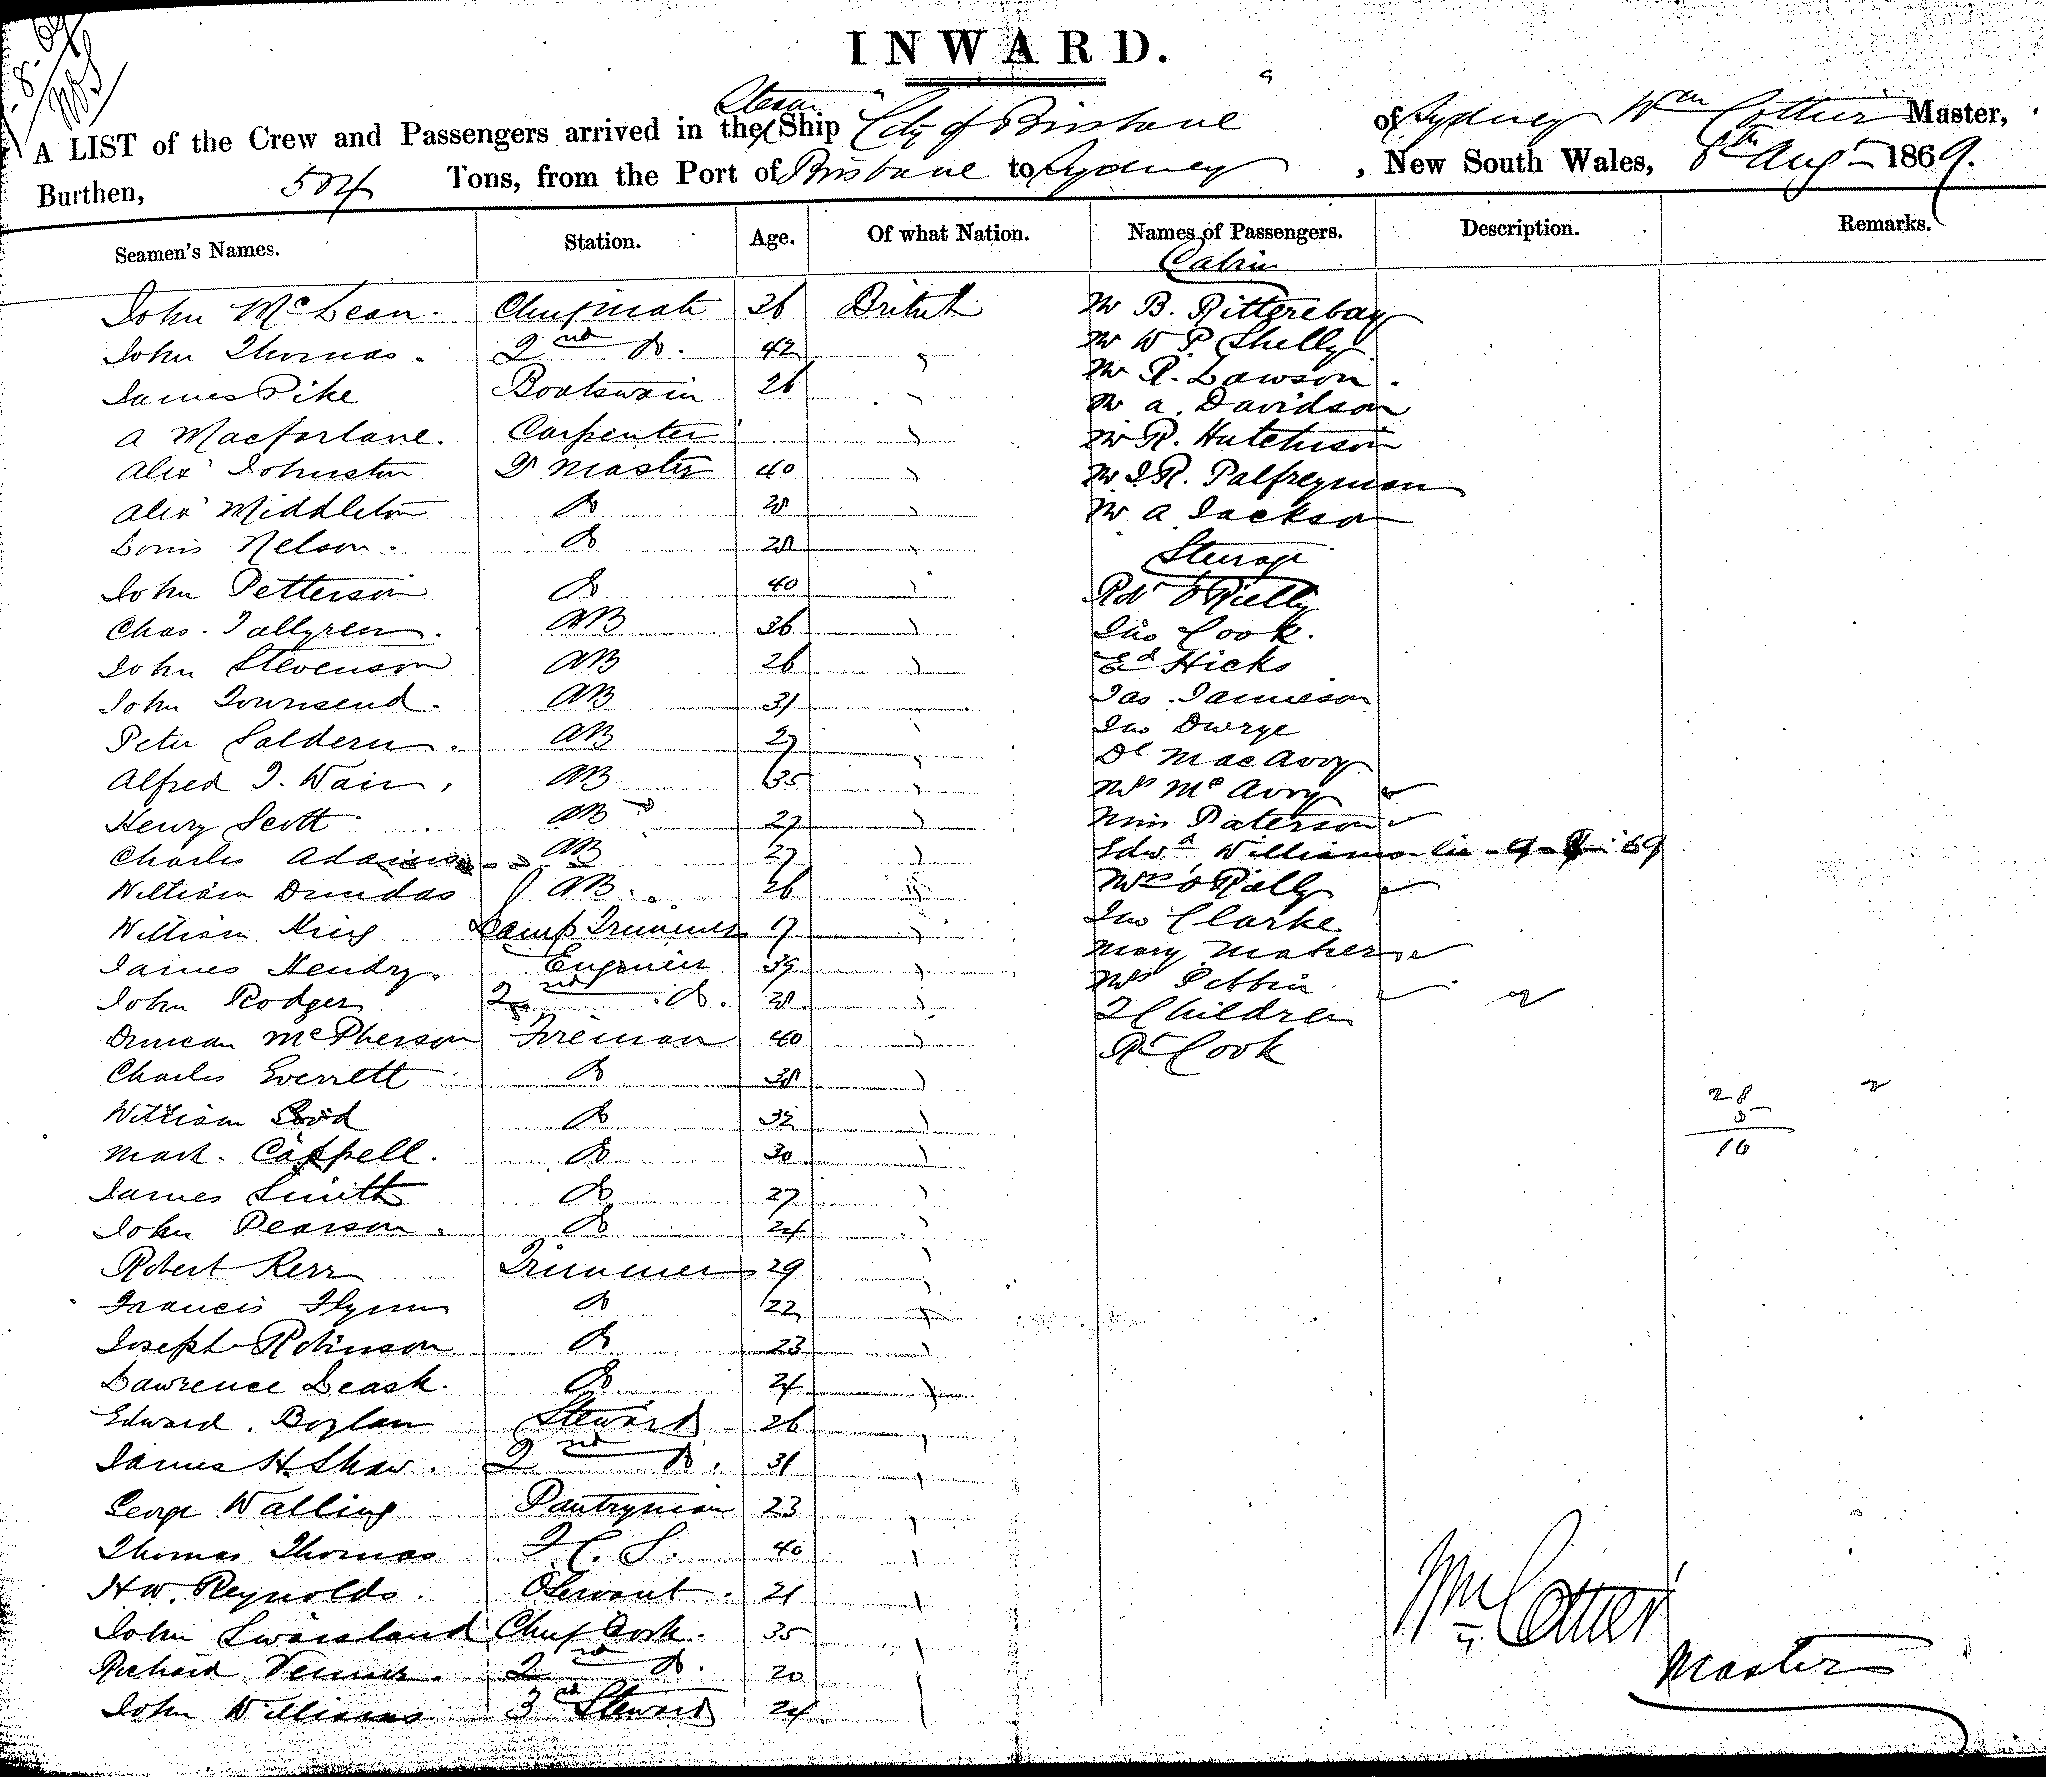 INWARD.
A LIST of the Crew and Passengers arrived in the Steam Ship "City of Brisbane of Sydney Wm Cottier Master,
Burthen, 504 Tons, from the Port of Brisbane to Sydney , New South Wales, 8th Augt 1869.
Seamen's Names. Station. Age. Of what Nation. Names of Passengers. Description. Remarks.
Cabin
John McLean. Chief mate 36 British Mr B.
John Thomas. 2nd Do. 42 " Mr W P Shelly
James Pike Boatswain 26 " Mr R. Lawson.
A Macfarlane. Carpenter " Mr A. Davidson
Alexr Johnston Qr Master 40 " Mr R. Hutchison
Alexr Middleton Do 28 " Mr J R. Palfreyman
Louis Nelson. Do 28 " Mr A Jackson
Steerage
John Petterson Do 40 " O'Rielly
Chas. AB 36 " Jno Cook.
John Stevenson AB 26 " Ed Hicks
John Townsend. AB 31 " Jas. Jamieson
Peter AB 27 " Jno Dwrye
Alfred J. Wair. AB 35 " Dl MacAvoy
Henry Scott AB 27 " Mrs McAvoy
Charles Adams AB 27 " Miss Paterson
William Dundas AB. 26 " Edwd Williams 69
William King Lamp Trimmer 17 " Mrs O'Rielly
James Hendry. Engineer 39 " Jno Clarke
John Rodger 2nd Do. 28 " Mary Maher
Duncan McPherson Fireman 40 " Mrs
2 Children
Charles Everett Do 38 " Cook
William Do 32 " 28
Mark. Cappell. Do 30 " 16
James Smith Do 27 "
John Pearson. Do 24 "
Robert Kerr Trimmer 29 "
Francis Flynn Do 22 "
Joseph Robinson Do 23 "
Lawrence Leask. Do 24 "
Edward. Boylan Steward 26 "
James H. Shaw. 2nd Do. 31 "
George Walling Pantryman 23 "
Thomas Thomas F. C. S. 40 "
H W. Reynolds. 21 "
John Swaisland Chief Cook. 35 "
Richard 2nd Do. 20 "
John Williams 3rd Steward 24 "
Wm Cottier
Master